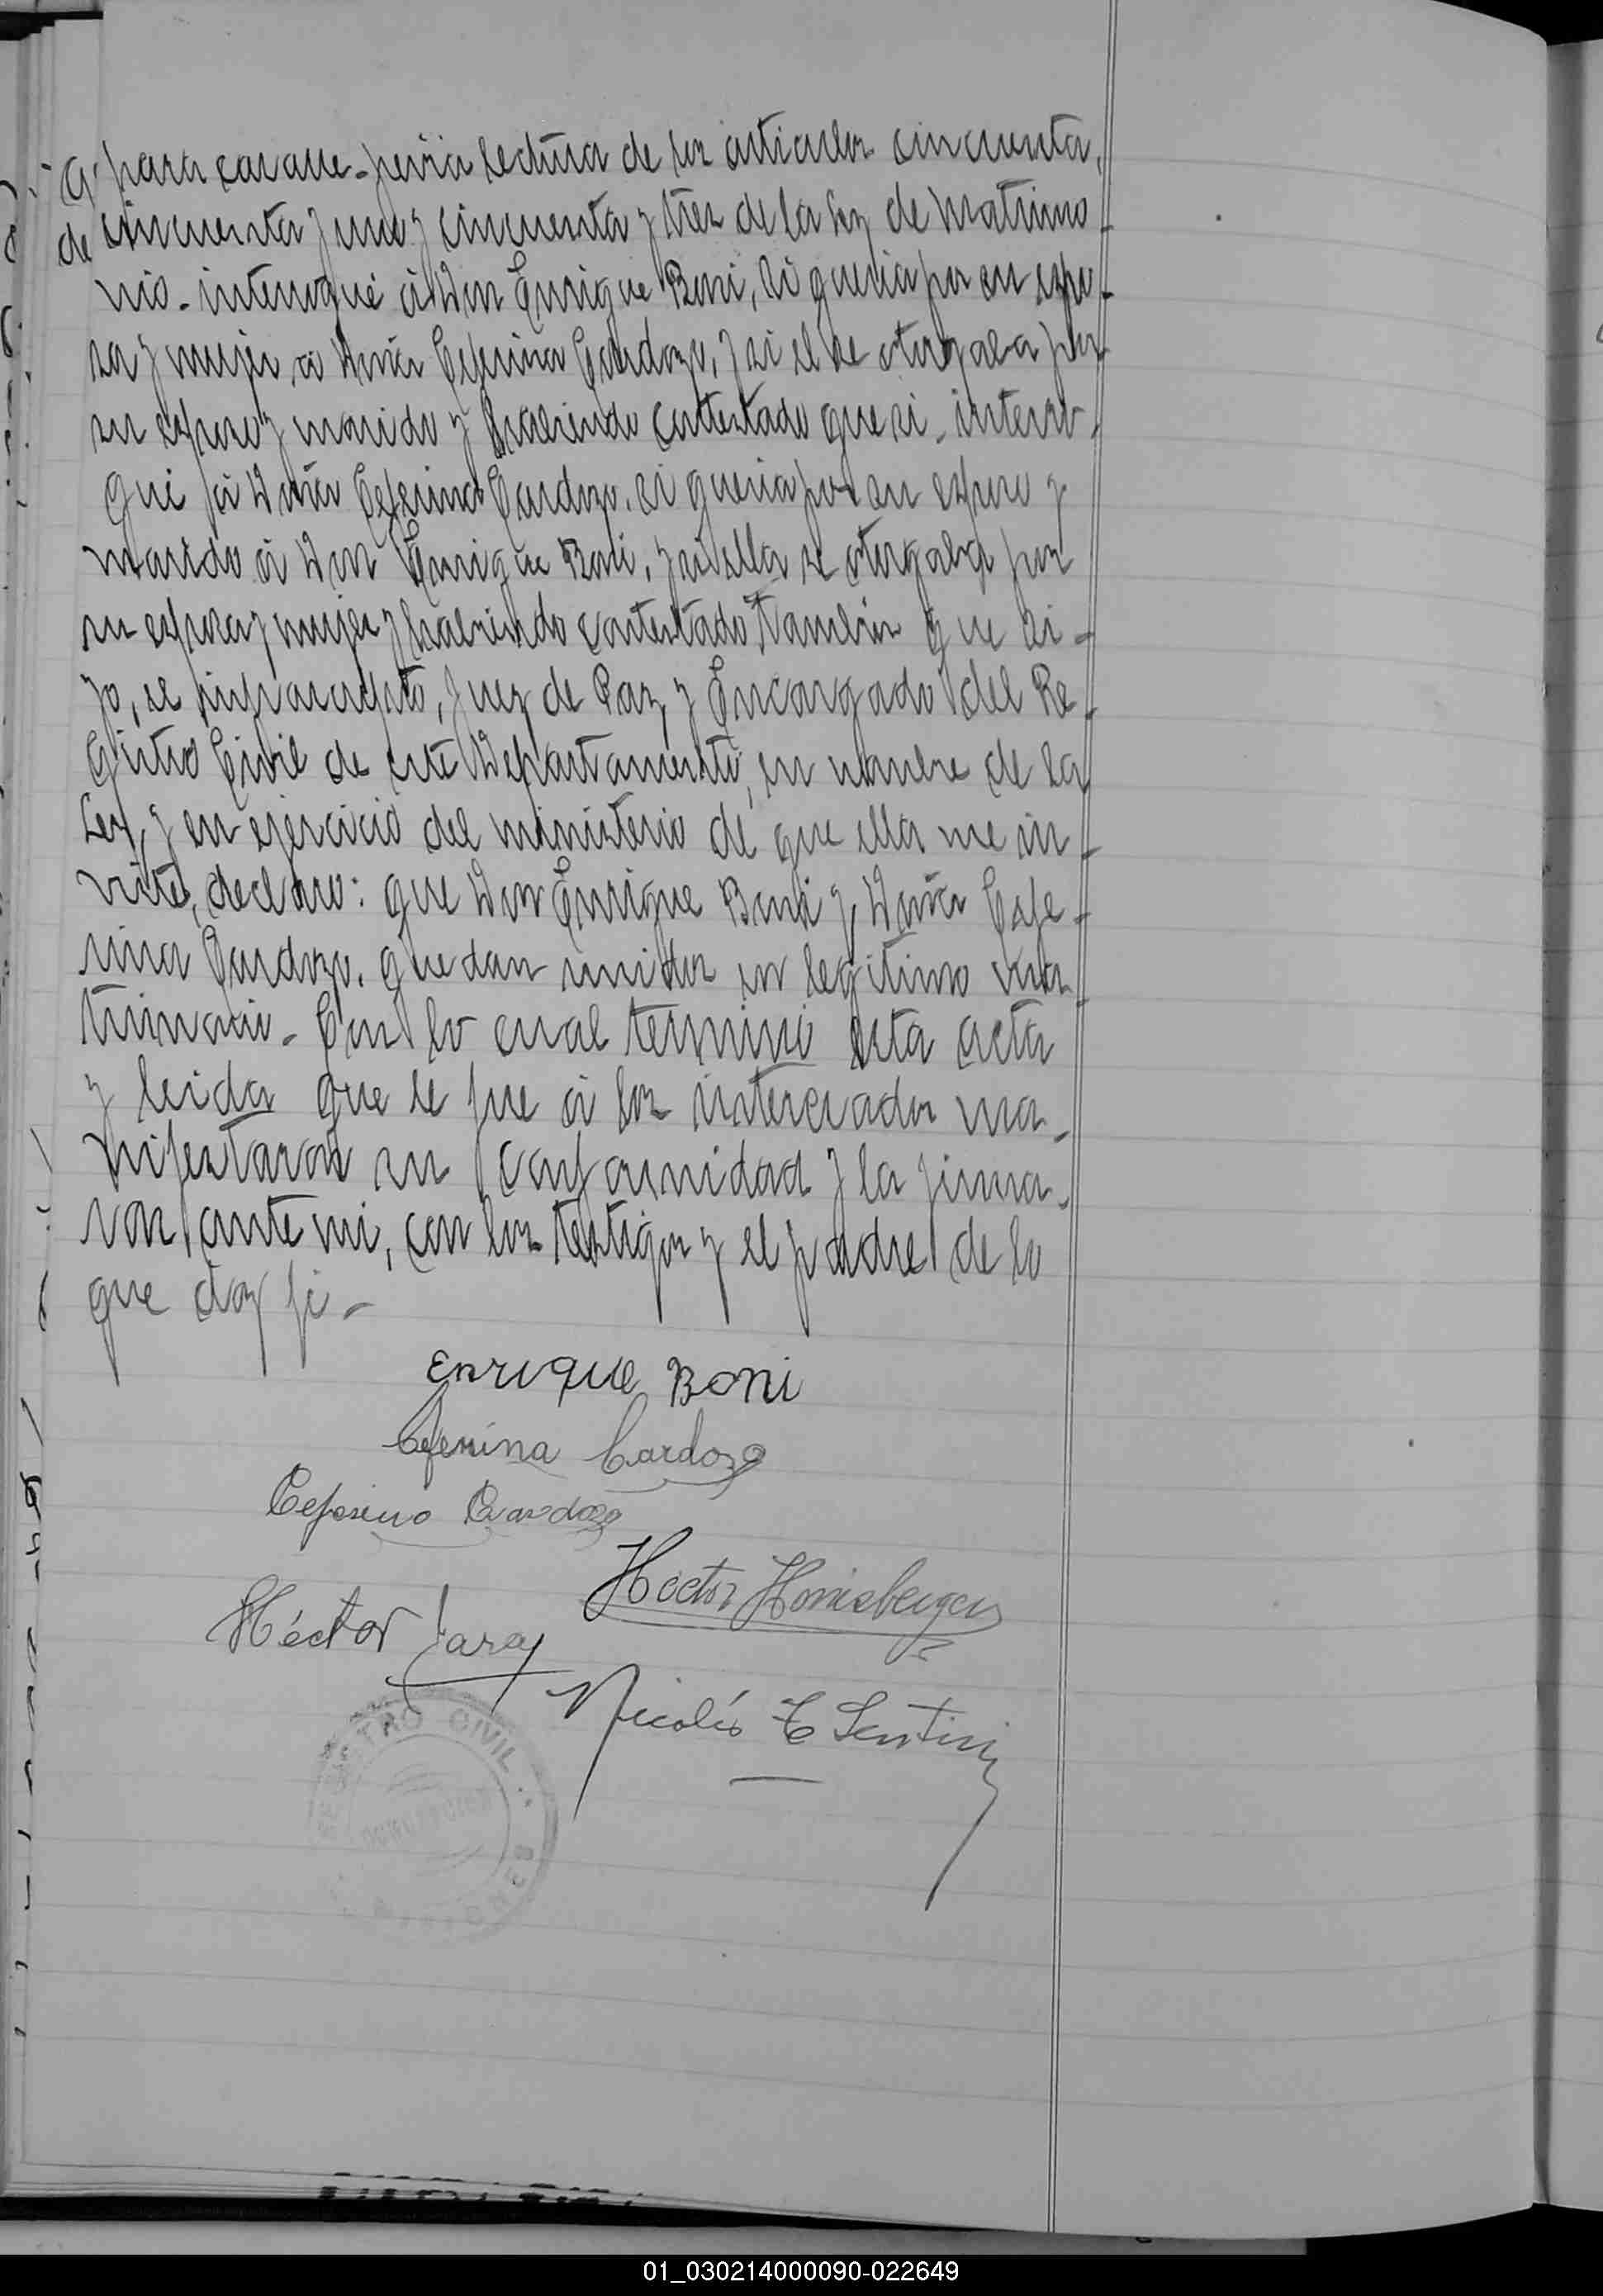 para casarse. previa lectura de los articulos cincuenta,
cincuenta y uno y cincuenta y tres de la Ley de Matrimo-
nio. interrogué á Don Enrique Boni, si queria por su espo-
sa y mujer á Doña Ceferina Cardozo, y si el se otorgaba por
su esposo y marido y habiendo contestado que si. interro-
gué á Doña Ceferina Cardozo. si queria por su esposo y
marido á Don Enrique Boni, y si ella se otorgaba por
su esposa y mujer y habiendo contestado tambien que si-
yo, el infrascripto, Juez de Paz y Encargado del Re-
gistro Civil de este Departamento, en nombre de la
Ley, y en ejercicio del ministerio de que ella me in-
viste, declaro: que Don Enrique Boni y Doña Cefe-
rina Cardozo. quedan unidos en legitimo ma-
trimonio. Con lo cual terminó esta acta
y leida que le fue á los interesados ma-
nifestaron su conformidad y la firma-
ron ante mi, con los testigos y el padre de lo
que doy fé-
Enrique Boni
Ceferina Cardozo
Ceferino Cardozo
Hector Honisberger
Héctor Jara
Nicolás
REGISTRO CIVIL
CONCEPCION
MISIONES
01_030214000090-022649